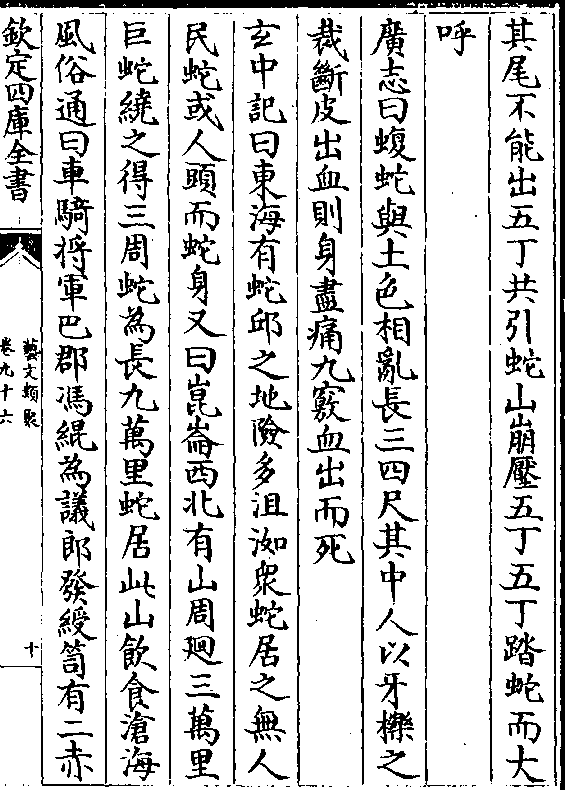 其尾不能出五丁共引蛇山崩壓五丁五丁踏蛇而大
呼
廣志曰蝮蛇與土色相亂長三四尺其中人以牙櫟之
裁斷皮出血則身盡痛九竅血出而死
玄中記曰東海有蛇邱之地險多沮洳衆蛇居之無人
民蛇或人頭而蛇身又曰崑崙西北有山周廻三萬里
巨蛇繞之得三周蛇為長九萬里蛇居此山飲食滄海
風俗通曰車騎將軍巴郡馮緄為議郎發綬笥有二赤
欽定四庫全書
藝文類聚
卷九十六
十